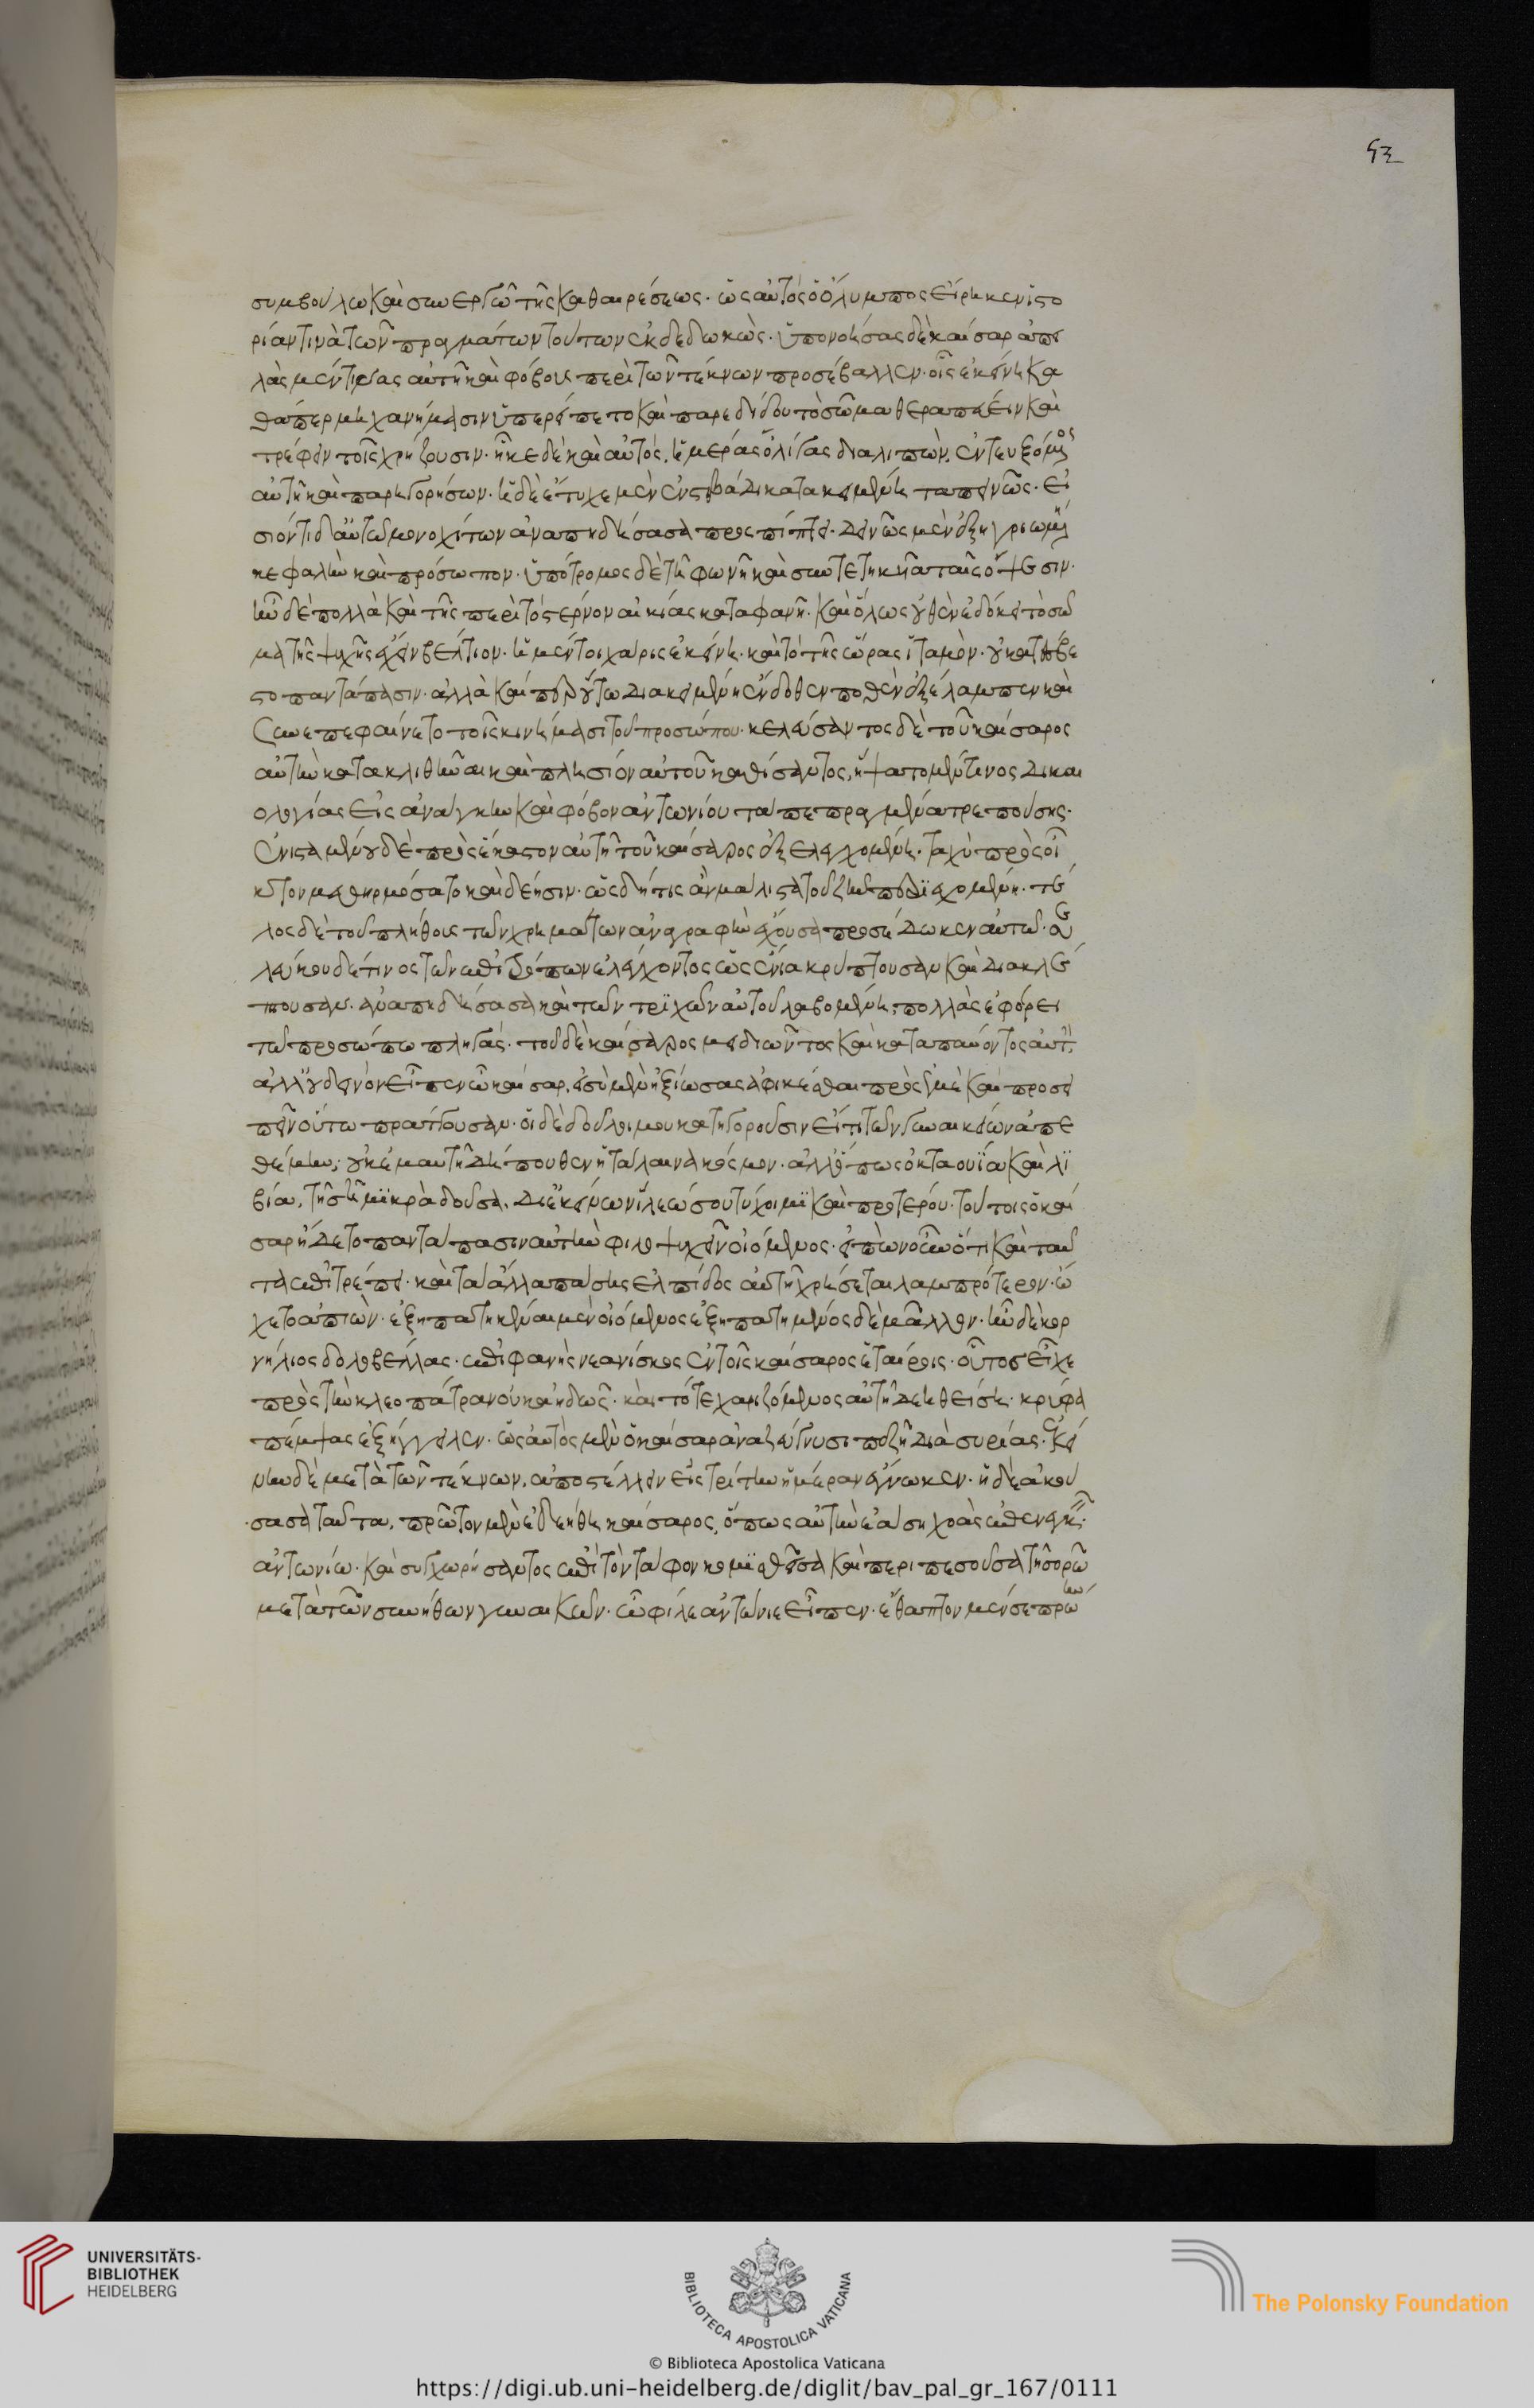 συμβούλω καὶ συνεργῶ τῆς καθαιρέσεως· ὡς αὐτὸς ὁ ὄλυμπος εἴρηκεν ἱστο
ρίαν τινὰ τῶν πραγμάτων τούτων ἐκδεδωκὼς· ὑπονοήσας δὲ καῖσαρ ἀπει
λὰς μέν τινας αὐτῆ καὶ φόβους περὶ τῶν τέκνων προσέβαλλεν· οἷς ἐκείνη κα
θάπερ μηχανήμασιν ὑπερείπετο καὶ παρεδίδου τὸ σῶμα θεραπεύειν καὶ
τρέφειν τοῖς χρήζουσιν· ἧκε δὲ καὶ αὐτὸς, ἡμέρας ὀλίγας διαλιπὼν, ἐντευξόμενος
αὐτῆ καὶ παρηγορήσων· ἡ δὲ ἔτυχε μὲν ἐν στιβάδι κατακειμένη ταπεινῶς· εἰ
σιόντι δ' αὐτῶ μονοχίτων ἀναπηδήσασα προσπίπτει· δεινῶς μὲν ἐξηγριωμένη
κεφαλὴν καὶ πρόσωπον· ὑπότρομος δὲ τῆ φωνῆ καὶ συντετηκυῖα ταῖς ὄψεσιν·
ἦν δὲ πολλὰ καὶ τῆς περὶ τὸ στέρνον αἰκίας καταφανῆ· καὶ ὅλως οὐθὲν ἐδόκει τὸ σῶ
μα τῆς ψυχῆς ἔχειν βέλτιον· ἡ μέντοι χάρις ἐκείνη· καὶ τὸ τῆς ὥρας ἰταμὸν· οὐ κατέσβε
στο παντάπασιν· ἀλλὰ καίπερ οὕτω διακειμένης ἔνδοθέν ποθεν ἐξέλαμπεν καὶ
συνεπεφαίνετο τοῖς κινήμασι τοῦ προσώπου· κελεύσαντος δὲ τοῦ καίσαρος
αὐτὴν κατακλιθῆναι καὶ πλησίον αὐτοῦ καθίσαντος, ἥψατο μέν τινος δικαι
ολογίας εἰς ἀνάγκην καὶ φόβον ἀντωνίου τὰ πεπραγμένα τρεπούσης·
ἐνισταμένου δὲ πρὸς ἕκαστον αὐτῆ τοῦ καίσαρος ἐξελεγχομένη· ταχὺ πρὸς οἶ
κτον μεθηρμόσατο καὶ δέησιν· ὡς δή τις ἂν μάλιστα τοῦ ζῆν περιεχομένη· τέ
λος δὲ τοῦ πλήθους τῶν χρημάτων ἀναγραφὴν ἔχουσα προσέδωκεν αὐτῶ· σε
λεύκου δέ τινος τῶν ἐπιτρόπων ἐλέγχοντος ὡς ἔνια κρύπτουσαν καὶ διακλέ
πτουσαν· ἀναπηδήσασα καὶ τῶν τριχῶν αὐτοῦ λαβομένη, πολλὰς ἐφόρει
τῶ προσώπω πληγάς· τοῦ δὲ καίσαρος μειδιῶντος καὶ καταπαύοντος αὐτὴν,
ἀλλ' οὐ δεινὸν εἶπεν ὦ καῖσαρ, εἰ σὺ μὲν ἠξίωσας ἀφικέσθαι πρὸς ἐμὲ καὶ προσει
πεῖν οὕτω πράττουσαν· οἱ δὲ δοῦλοί μου κατηγοροῦσιν εἴ τι τῶν γυναικείων ἀπε
θέμην; οὐκ ἐμαυτῆ δήπουθεν ἡ τάλαινα κόσμον· ἀλλ' ὅπως ὀκταουία καὶ λι
βία, τῆ σῆ μικρὰ δοῦσα, δι' ἐκείνων ἵλεώ σου τύχοιμι καὶ πραοτέρου· τούτοις ὁ καῖ
σαρ ἥδετο παντάπασιν αὐτὴν φιλοψυχεῖν οἰόμενος· εἰπὼν οὖν ὅτι καὶ ταῦ
τα ἐπιτρέπει· καὶ τἄλλα πάσης ἐλπίδος αὐτῆ χρήσεται λαμπρότερον· ὤ
χετο ἀπιὼν· ἐξηπατηκέναι μὲν οἰόμενος ἐξηπατημένος δὲ μᾶλλον· ἦν δὲ κορ
νήλιος δολοβέλλας· ἐπιφανὴς νεανίσκος ἐν τοῖς καίσαρος ἑταίροις· οὗτος εἶχε
πρὸς τὴν κλεοπάτραν οὐκ ἀηδῶς· καὶ τότε χαριζόμενος αὐτῆ δεηθείση· κρύφα
πέμψας ἐξήγγειλεν· ὡς αὐτὸς μὲν ὁ καῖσαρ ἀναζεύγνυσι πεζῆ διὰ συρίας· ἐκεί
νην δὲ μετὰ τῶν τέκνων, ἀποστέλλειν εἰς τρίτην ἡμέραν ἔγνωκεν· ἡ δὲ ἀκού
σασα ταῦτα, πρῶτον μὲν ἐδεήθη καίσαρος, ὅπως αὐτὴν ἐάση χοὰς ἐπενεγκεῖν
ἀντωνίω· καὶ συγχωρήσαντος ἐπὶ τὸν τάφον κομισθεῖσα καὶ περιπεσοῦσα τῆ σορῶ
μετὰ τῶν συνήθων γυναικῶν· ὦ φίλε ἀντώνιε εἶπεν· ἔθαπτον μέν σε πρώην
UNIVERSITÄTS-
BIBLIOTHEK
HEIDELBERG
BIBLIOTECA APOSTOLICA VATICANA
The Polonsky Foundation
© Biblioteca Apostolica Vaticana
https://digi.ub.uni-heidelberg.de/diglit/bav_pal_gr_167/0111